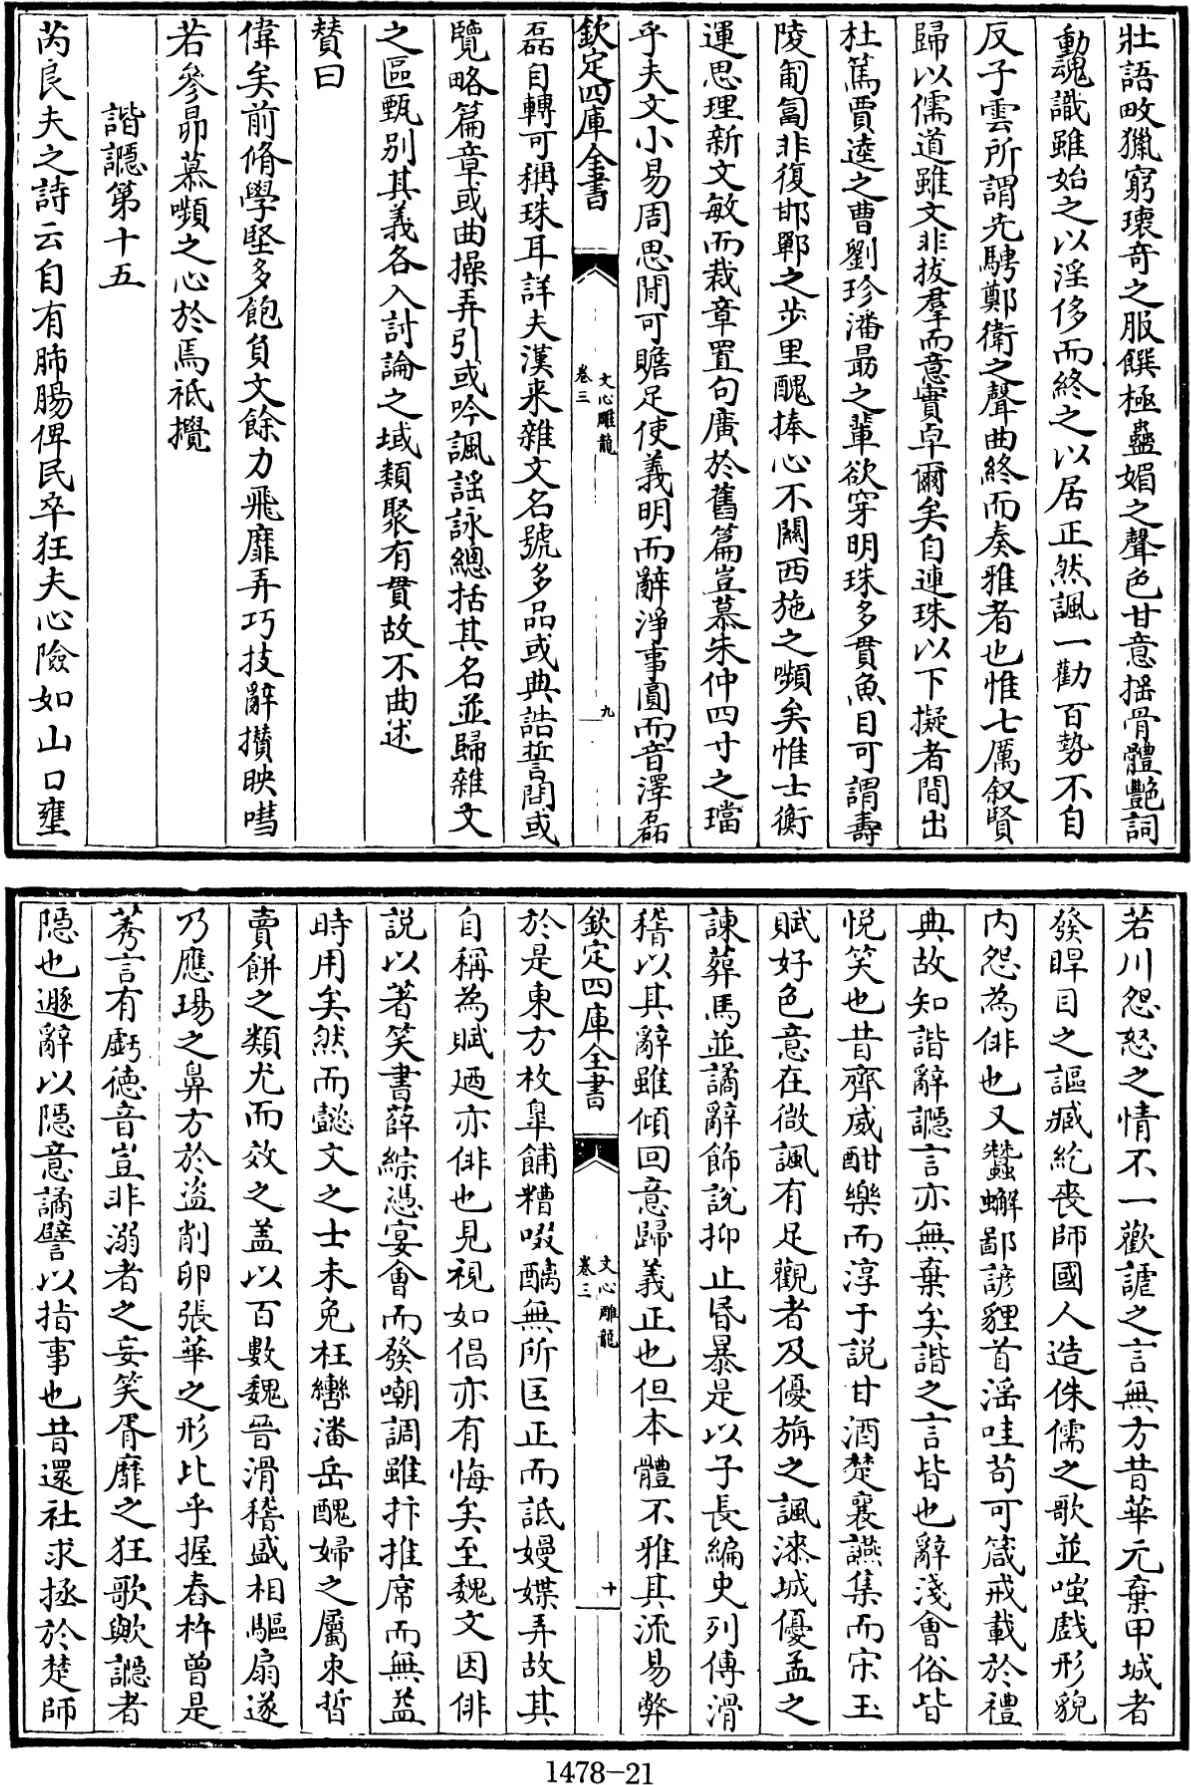 壯語畋獵窮瓌奇之服饌極蠱媚之聲色甘意揺骨體艷詞
動魂識雖始之以淫侈而終之以居正然諷一勸百勢不自
反子雲所謂先騁鄭衛之聲曲終而奏雅者也惟七厲叙賢
歸以儒道雖文非拔羣而意實卓爾矣自連珠以下擬者間出
杜篤賈逵之曹劉珍潘勗之輩欲穿明珠多貫魚目可謂壽
陵匍匐非復邯鄲之步里醜捧心不關西施之嚬矣惟士衡
運思理新文敏而裁章置句廣於舊篇豈慕朱仲四寸之璫
乎夫文小易周思閒可贍足使義明而辭淨事圓而音澤磊
欽定四庫全書
文心雕龍
卷三
九
磊自轉可稱珠耳詳夫漢来雜文名號多品或典誥誓問或
覽略篇章或曲操弄引或吟諷謡詠總括其名並歸雜文
之區甄别其義各入討論之域類聚有貫故不曲述
賛曰
偉矣前脩學堅多飽負文餘力飛靡弄巧技辭攅映嘒
若參昴慕嚬之心於焉祗攪
諧讔第十五
芮良夫之詩云自有肺腸俾民卒狂夫心險如山口壅
若川怨怒之情不一歡謔之言無方昔華元棄甲城者
發睅目之謳臧紇喪師國人造侏儒之歌並嗤戲形貌
内怨為俳也又蠶蠏鄙諺貍首淫哇苟可箴戒載於禮
典故知諧辭讔言亦無棄矣諧之言皆也辭淺會俗皆
悦笑也昔齊威酣樂而淳于説甘酒楚襄讌集而宋玉
賦好色意在微諷有足觀者及優旃之諷漆城優孟之
諫葬馬並譎辭飾說抑止昏暴是以子長編史列傳滑
稽以其辭雖傾回意歸義正也但本體不雅其流易弊
欽定四庫全書
文心雕龍
卷三
十
於是東方枚臯餔糟啜醨無所匡正而詆嫚媟弄故其
自稱為賦廼亦俳也見視如倡亦有悔矣至魏文因俳
説以著笑書薛綜憑宴會而發嘲調雖抃推席而無益
時用矣然而懿文之士未免枉轡潘岳醜婦之屬束晳
賣餅之類尤而效之蓋以百數魏晉滑稽盛相驅扇遂
乃應瑒之鼻方於盗削卵張華之形比乎握舂杵曾是
莠言有虧德音豈非溺者之妄笑胥靡之狂歌歟讔者
隠也遯辭以隠意譎譬以指事也昔還社求拯於楚師
1478-21